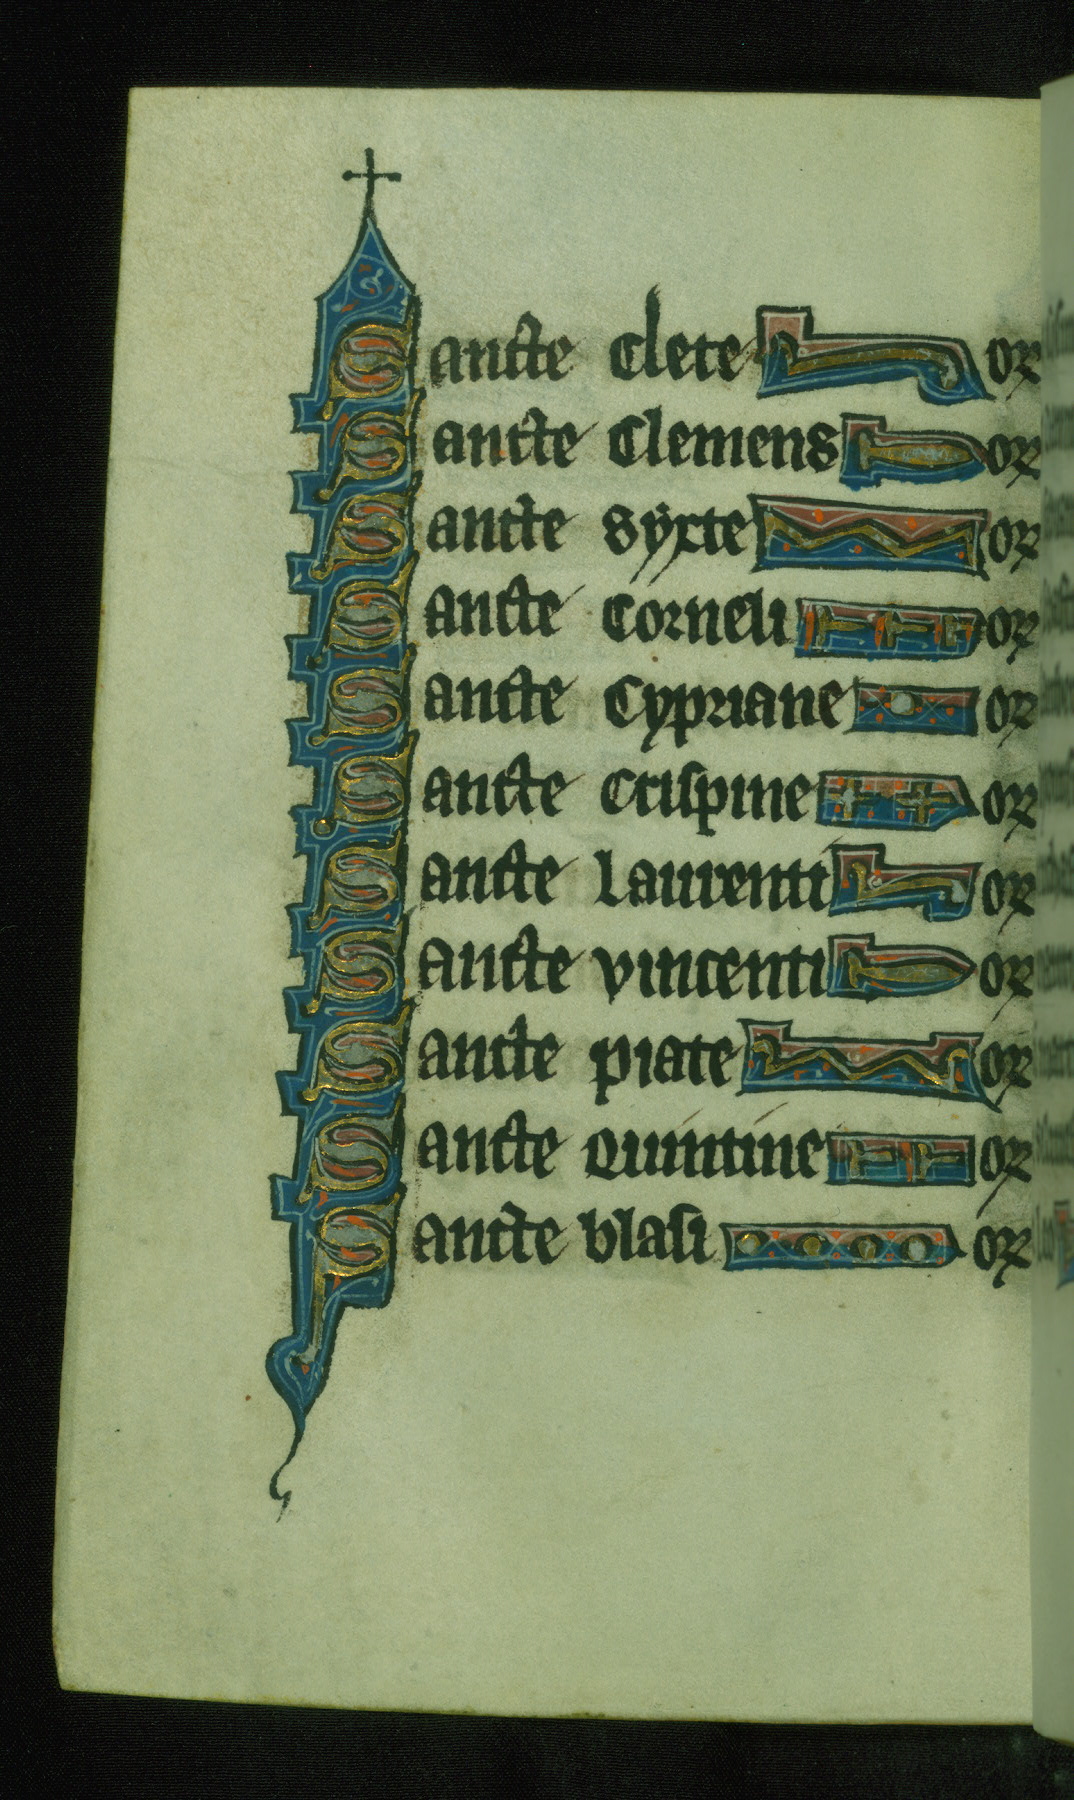 Sancte Clete or
Sancte Clemens or
Sancte Syxte or
Sancte Corneli or
Sancte Cypriane or
Sancte Crispine or
Sancte laurenti or
Sancte vincenti or
Sancte piate or
Sancte Quintine or
Sancte blasi or